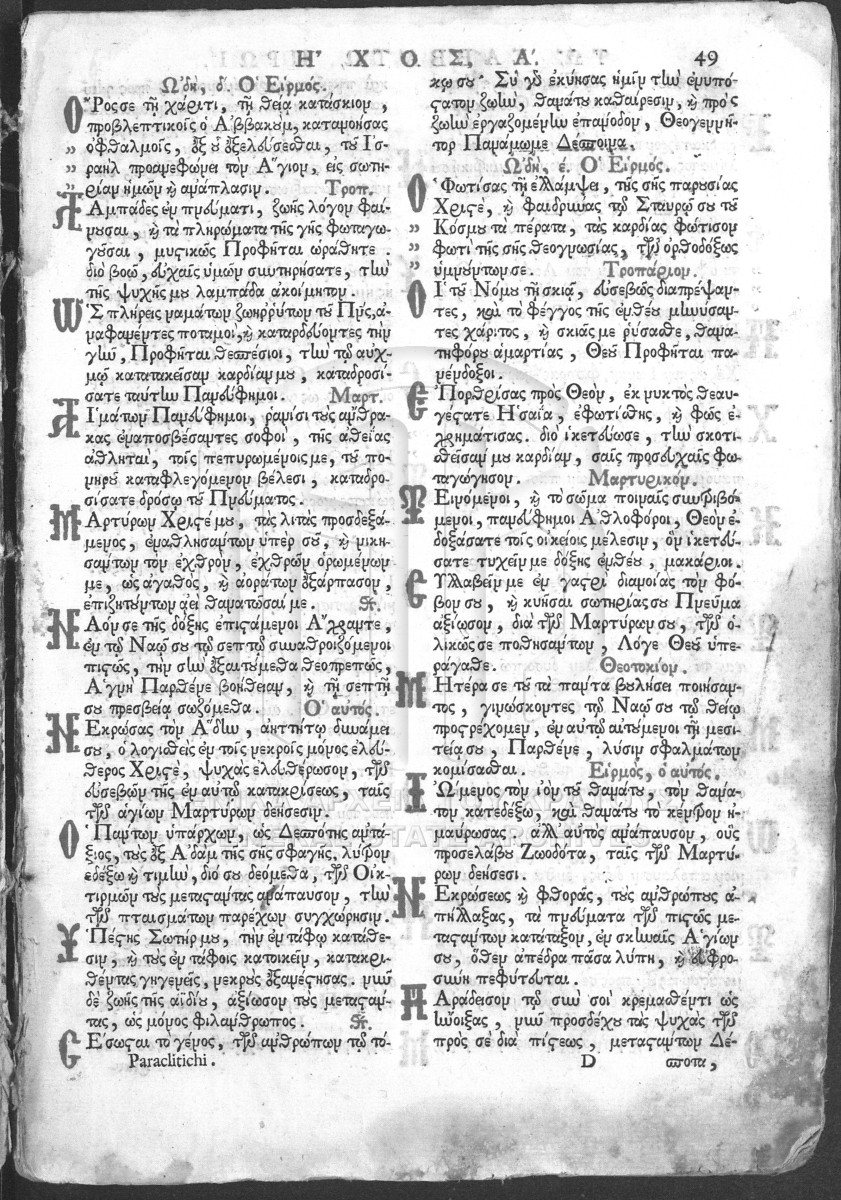 Η῏ΧΟΣ, Α'. 49
Ὠδὴ, δ. Ὁ Εἱρμός.
Ὄρος σε τῇ χάριτι, τῇ θείᾳ κατάσκιον,
προβλεπτικοῖς ὁ Ἀββακούμ, κατανοήσας
ὀφθαλμοῖς, ἐξ οὗ ἐξελεύσεσθαι, τοῦ Ἰσ-
ραὴλ προανεφώνει τὸν Ἅγιον, εἰς σωτη-
ρίαν ἡμῶν καὶ ἀνάπλασιν. Τροπ.
Λαμπάδες ἐν πνεύματι, ζωῆς λόγον φαί-
νουσαι, καὶ τὰ πληρώματα τῆς γῆς φωταγω-
γοῦσαι, μυστικῶς Προφῆται ὡράθητε.
διὸ βοῶ, εὐχαῖς ὑμῶν συντηρήσατε, τὴν
τῆς ψυχῆς μου λαμπάδα ἀκοίμητον.
Ὡς πλήρεις ναμάτων ζωηῤῥύτων τοῦ Πνς, ἀ-
ναφανέντες ποταμοί, καὶ καταρδεύοντες τὴν
γῆν, Προφῆται θεσπέσιοι, τὴν τῷ αὐχ-
μῷ κατατακεῖσαν καρδίαν μου, καταδροσί-
σατε ταύτην Πανεύφημοι. Μαρτ.
Αἱμάτων Πανεύφημοι, ρανίσι τοὺς ἄνθρα-
κας ἐναποσβέσαντες σοφοί, τῆς ἀθεΐας
ἀθληταί, τοῖς πεπυρωμένοις με, τοῦ πο-
νηροῦ καταφλεγόμενον βέλεσι, καταδρο-
σίσατε δρόσῳ τοῦ Πνεύματος.
Μαρτύρων Χριστέ μου, τὰς λιτὰς προσδεξά-
μενος, ἐναθλησάντων ὑπὲρ σοῦ, καὶ νικη-
σάντων τὸν ἐχθρὸν, ἐχθρῶν ὁρωμένων
με, ὡς ἀγαθὸς, καὶ ἀοράτων ἐξάρπασον,
ἐπιζητούντων ἀεὶ θανατῶσαί με. Στ.
Ναόν σε τῆς δόξης ἐπιστάμενοι Ἄχραντε,
ἐν τῷ Ναῷ σου τῷ σεπτῷ συναθροιζόμενοι
πιστῶς, τὴν σὴν ἐξαιτούμεθα θεοπρεπῶς,
Ἁγνὴ Παρθένε βοήθειαν, καὶ τῇ σεπτῇ
σου πρεσβείᾳ σωζόμεθα. Ὁ αὐτός.
Νεκρώσας τὸν Ἅδην, ἀηττήτῳ δυνάμει
σου, ὁ λογισθεὶς ἐν τοῖς νεκροῖς μόνος ἐλεύ-
θερος Χριστέ, ψυχὰς ἐλευθέρωσον, τῶν
εὐσεβῶν τῆς ἐν αὐτῷ κατακρίσεως, ταῖς
τῶν ἁγίων Μαρτύρων δεήσεσιν.
Ὁ Πάντων ὑπάρχων, ὡς Δεσπότης ἀντά-
ξιος, τοὺς ἐξ Ἀδὰμ τῆς σῆς σφαγῆς, λύτρον
ἐδέξω καὶ τιμὴν, διό σου δεόμεθα, τῶν Οἰκ-
τιρμῶν τοὺς μεταστάντας ἀνάπαυσον, τὴν
τῶν πταισμάτων παρέχων συγχώρησιν.
Ὑπέστης Σωτήρ μου, τὴν ἐν τάφῳ κατάθε-
σιν, καὶ τοὺς ἐν τάφοις κατοικεῖν, κατακρι-
θέντας γηγενεῖς, νεκροὺς ἐξανέστησας. νῦν
δὲ ζωῆς τῆς ἀϊδίου, ἀξίωσον τοὺς μεταστάν-
τας, ὡς μόνος φιλάνθρωπος. Στ.
Σέσωσται τὸ γένος, τῶν ἀνθρώπων τῷ τό-
Paraclitichi.
κῳ σου· Σὺ γὰρ ἐκύησας ἡμῖν τὴν ἐνυπό-
στατον ζωὴν, θανάτου καθαίρεσιν, καὶ πρὸς
ζωὴν ἐργαζομένην ἐπάνοδον, Θεογεννῆ-
τορ Πανάμωμε Δέσποινα.
Ὠδὴ, ε. Ὁ Εἱρμός.
Ὁ Φωτίσας τῇ ἐλλάμψει, τῆς σῆς παρουσίας
Χριστέ, καὶ φαιδρύνας τῷ Σταυρῷ σου τοῦ
Κόσμου τὰ πέρατα, τὰς καρδίας φώτισον
φωτὶ τῆς σῆς θεογνωσίας, τῶν ὀρθοδόξως
ὑμνούντων σε. Τροπάριον.
Οἱ τοῦ Νόμου τῇ σκιᾷ, εὐσεβῶς διαπρέψαν-
τες, καὶ τὸ φέγγος τῆς ἐνθέου μηνύσαν-
τες χάριτος, καὶ σκιᾶς με ῥύσασθε, θανα-
τηφόρου ἁμαρτίας, Θεοῦ Προφῆται πα-
νένδοξοι.
Ἐπορθρίσας πρὸς Θεὸν, ἐκ νυκτὸς θεαυ-
γέστατε Ἡσαΐα, ἐφωτίσθης, καὶ φῶς ἐ-
χρημάτισας. διὸ ἱκετεύω σε, τὴν σκοτι-
σθεῖσάν μου καρδίαν, σαῖς προσευχαῖς φω-
ταγώγησον. Μαρτυρικόν.
Τεινόμενοι, καὶ τὸ σῶμα ποιναῖς συντριβό-
μενοι, πανεύφημοι Ἀθλοφόροι, Θεὸν ἐ-
δοξάσατε τοῖς οἰκείοις μέλεσιν, ὃν ἱκετεύ-
σατε τυχεῖν με δόξης ἐνθέου, μακάριοι.
Συλλαβεῖν με ἐν γαστρὶ διανοίας τὸν φό-
βον σου, καὶ κυῆσαι σωτηρίας σου Πνεῦμα
ἀξίωσον, διὰ τῶν Μαρτύρων σου, τῶν ὁ-
λικῶς σε ποθησάντων, Λόγε Θεοῦ ὑπε-
ράγαθε. Θεοτοκίον.
Μητέρα σε τοῦ τὰ πάντα βουλήσει ποιήσαν-
τος, γινώσκοντες τῷ Ναῷ σου τῷ θείῳ
προστρέχομεν, ἐν αὐτῷ αὐτούμενοι τῇ μεσι-
τείᾳ σου, Παρθένε, λύσιν σφαλμάτων
κομίσασθαι. Εἱρμὸς, ὁ αὐτός.
Ἰώμενος τὸν ἰὸν τοῦ θανάτου, τὸν θάνα-
τον κατεδέξω, καὶ θανάτου τὸ κέντρον ἠ-
μαύρωσας. ἀλλ' αὐτὸς ἀνάπαυσον, οὓς
προσελάβου Ζωοδότα, ταῖς τῶν Μαρτύ-
ρων δεήσεσι.
Νεκρώσεως καὶ φθορᾶς, τοὺς ἀνθρώπους ἀ-
πήλλαξας, τὰ πνεύματα τῶν πιστῶς με-
ταστάντων κατάταξον, ἐν σκηναῖς Ἁγίων
σου, ὅθεν ἀπέδρα πᾶσα λύπη, καὶ εὐφρο-
σύνη πεφύτευται.
Παράδεισον τῷ σὺν σοὶ κρεμασθέντι ὡς
ἤνοιξας, νῦν προσδέχου τὰς ψυχὰς τῶν
πρὸς σὲ διὰ πίστεως, μεταστάντων Δέ-
D σποτα,